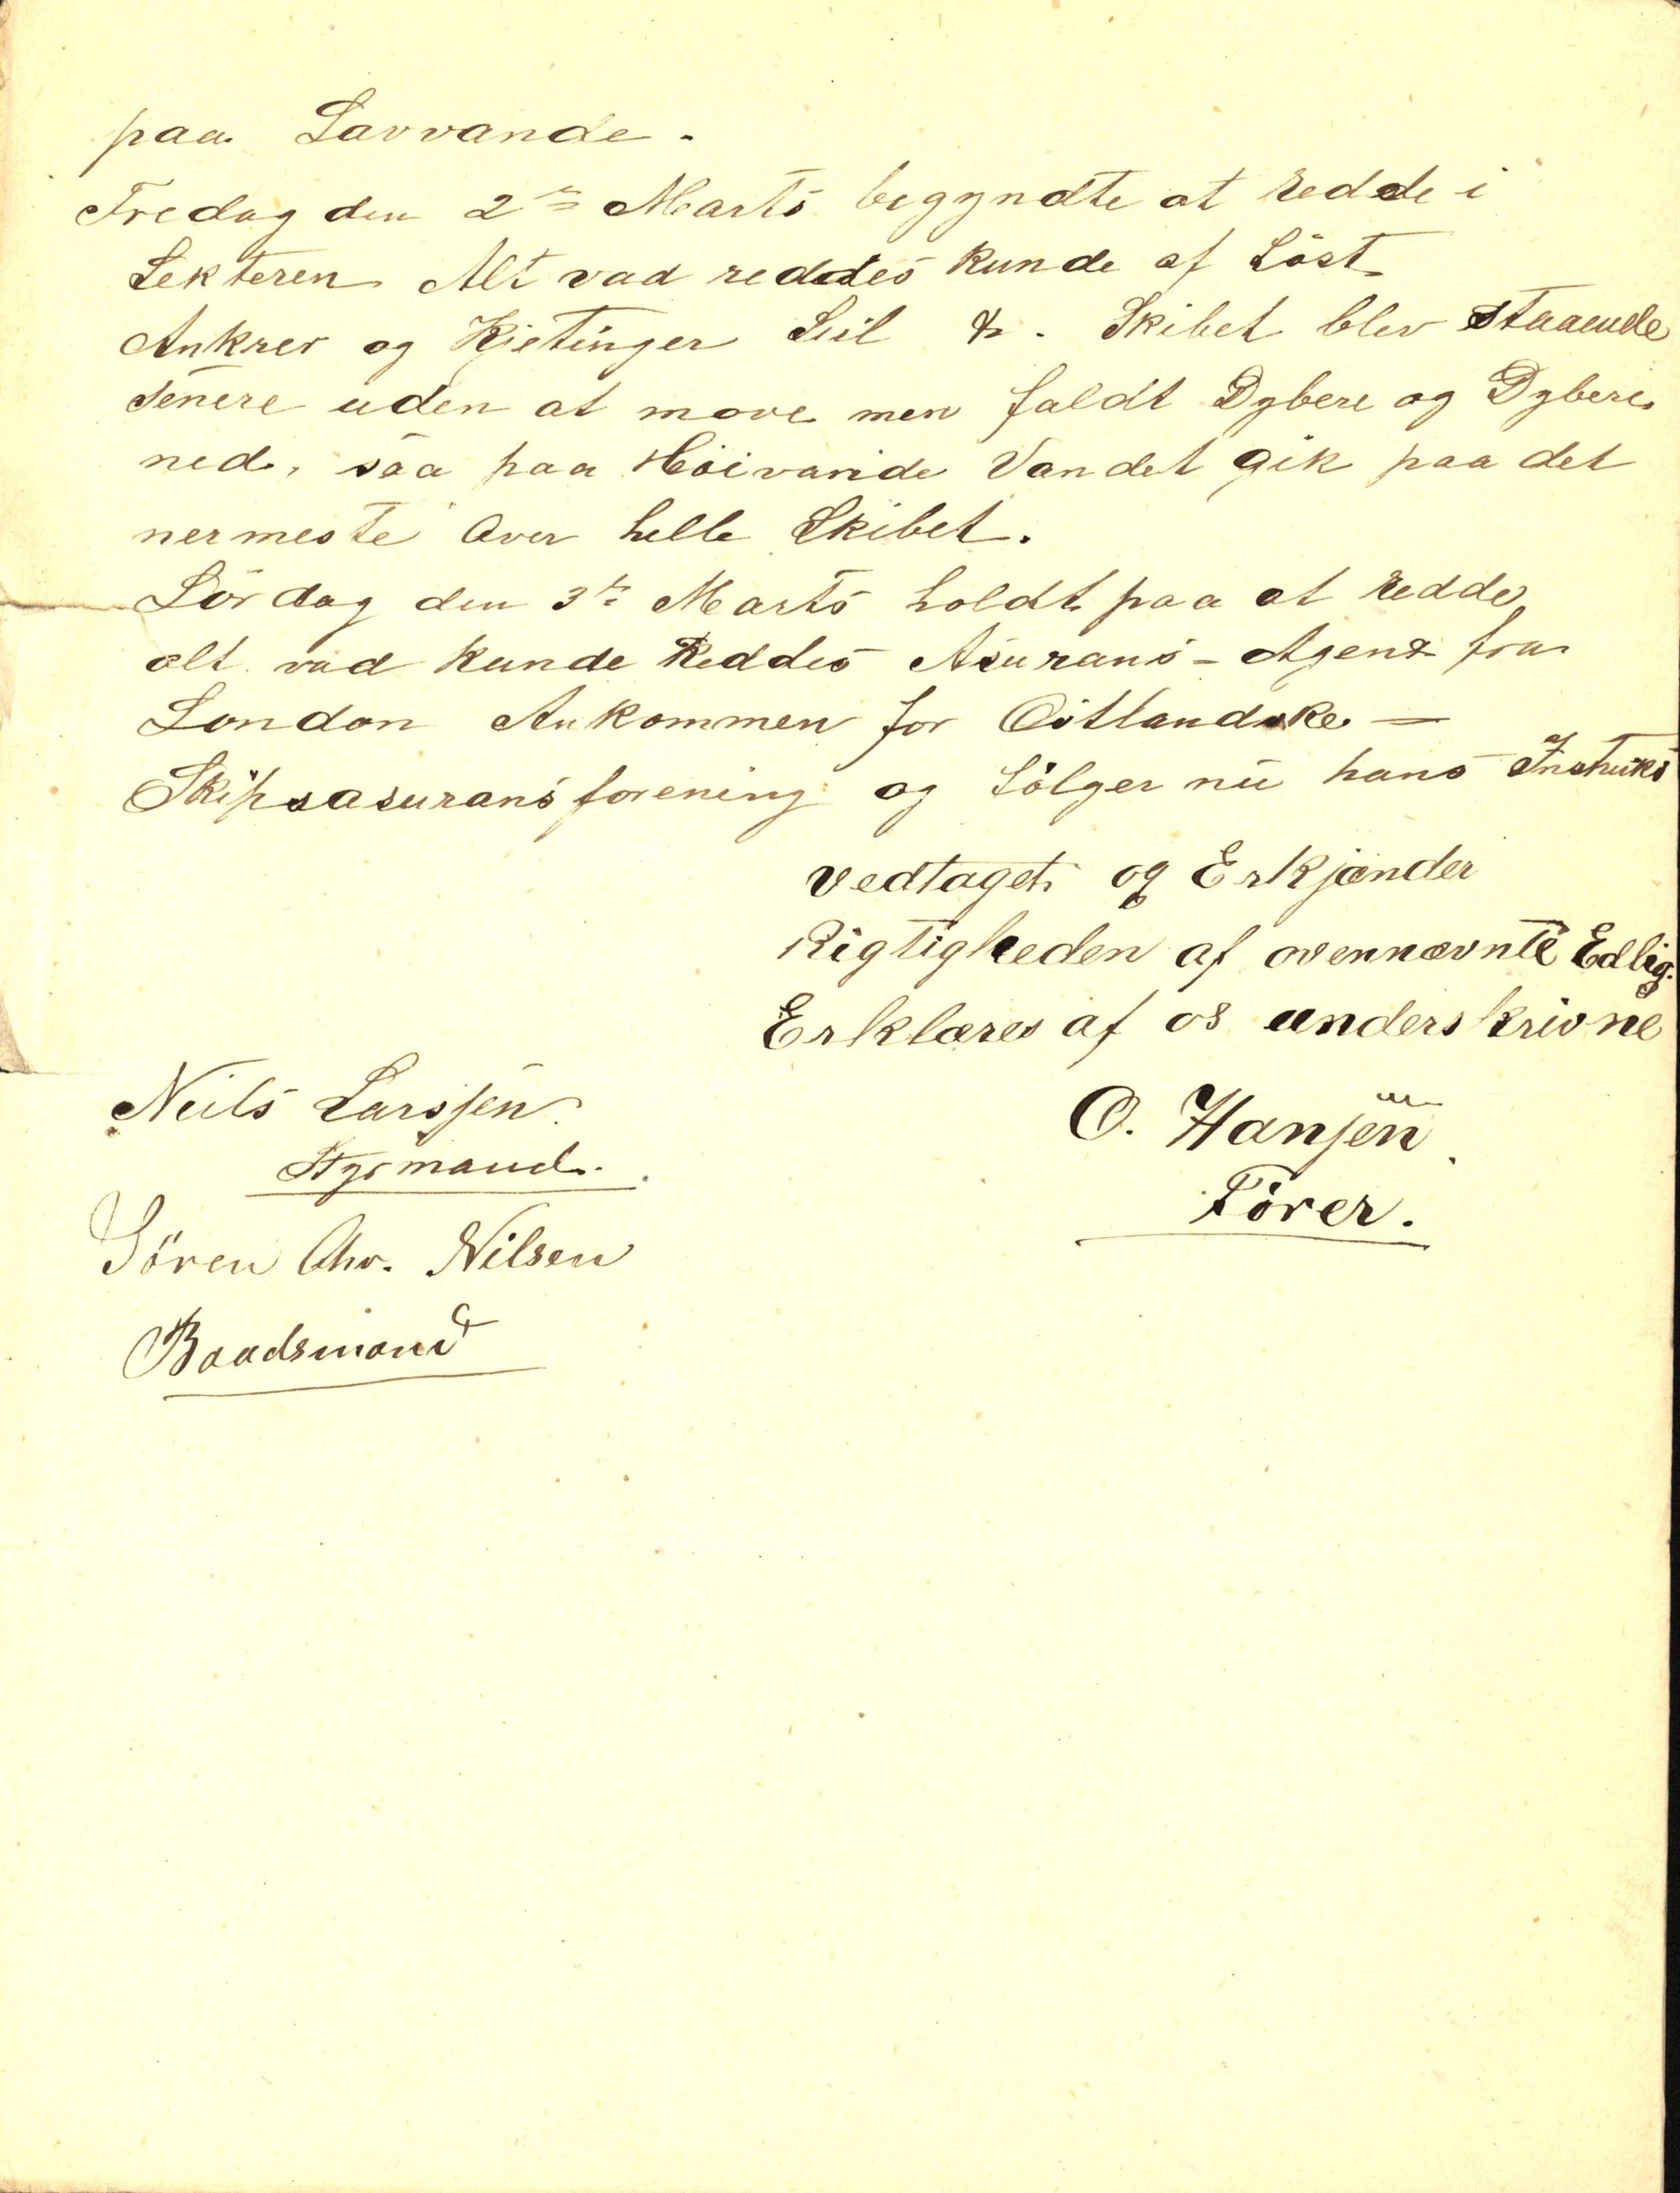 paa Lavvande.
Fredag den 2de Marts begyndte at redde i
Lekteren Alt vad reddes kunde af Löst
Ankrer og Kjetinger Seil &. Skibet blev staaende
senere uden at move men faldt Dybere og Dybere
ned, saa paa Höivande Vandet gik paa det
nermeste Over helle Skibet.
Lördag den 3de Marts holdt paa at redde
alt vad kunde Reddes Asurans-Agent fra
London Ankommen for Östlandske
Skipsasuransforening og fölger nu hans Instruks
Vedtaget og Erkjænder
Rigtigheden af ovennævnte Edlig.
Erklæres af os underskrivne
Neils Larssen
O. Hansen
Styrmand.
Förer.
Sören Chr. Nilsen
Baadsmand